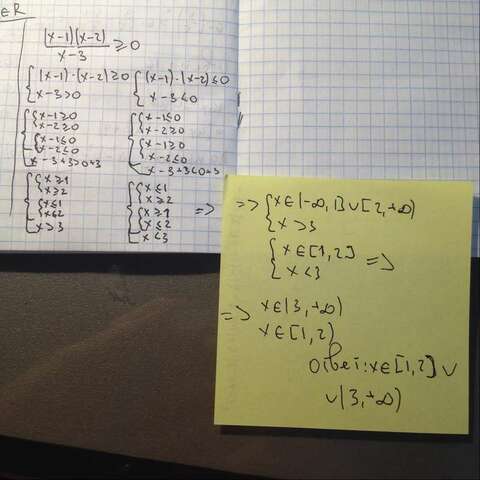 ∈R
(x-1)(x-2)
x-3
≥0
{(x-1)·(x-2)≥0
x-3>0
{(x-1)·(x-2)≤0
x-3<0
{{x-1≥0
x-2≥0
{x-1≤0
x-2≤0
x-3+3>0+3
{{x-1≤0
x-2≥0
{x-1≥0
x-2≤0
x-3+3<0+3
{{x≥1
x≥2
{x≤1
x≤2
x>3
{{x≤1
x≥2
{x≥1
x≤2
x<3
=>
=> {x∈(-∞,1]∪[2,+∞)
x>3
{x∈[1,2]
x<3 =>
=> x∈(3,+∞)
x∈[1,2)
Ответ: x∈[1,2]∪
∪(3,+∞)